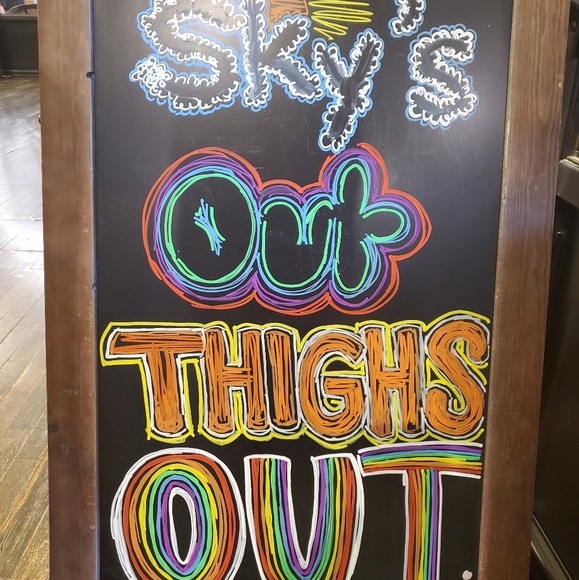 Sky's
Out
THIGHS
OUT